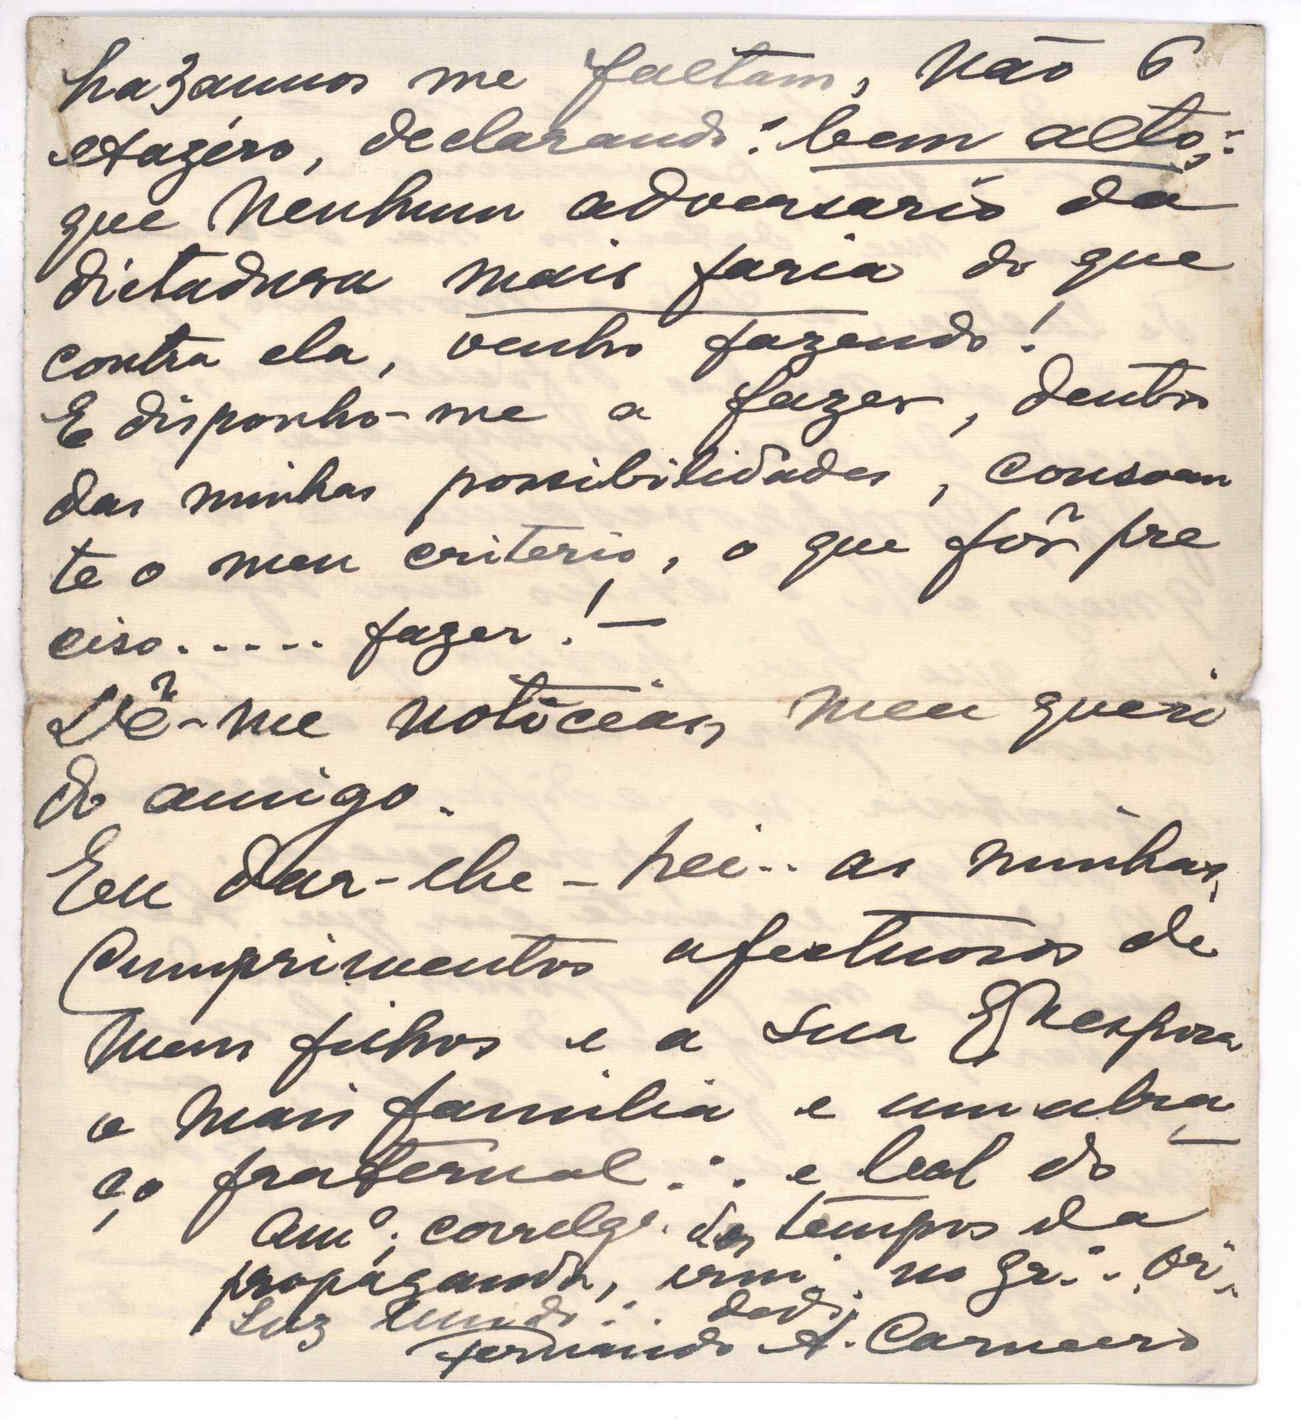 me faltam, não é
exagéro, declarando: bem alto,:
que nenhum adversario da
dictadura mais faria do que
contra ela, venho fazendo!
E disponho-me a fazer, dentro
das minhas possibilidades, consoan
te o meu criterio, o que fôr pre
ciso..... fazer!—
Dê-me noticias, meu queri
do amigo.
Eu dar-lhe-hei.. as minhas,
Cumprimentos afectuosos de
meus filhos e a sua Exma esposa
e mais familia e um abra
ço fraternal ∴ e leal do
Amº, correlgº. dos tempos da
propaganda, irm∴ no Gr∴ Or∴
Luz dedº
Fernando A. Carneiro